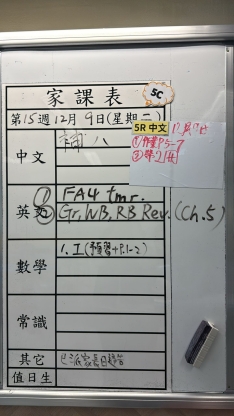 5C
家課表
第15週12月9日(星期二)
5R 中文
①作業P.5-7
中文
補八
英文
① FA4 tmr.
② Gr, WB, RB Rev. (Ch.5)
數學
1. 工(預習+P.1-2)
常識
其它
已派家長日通告
值日生